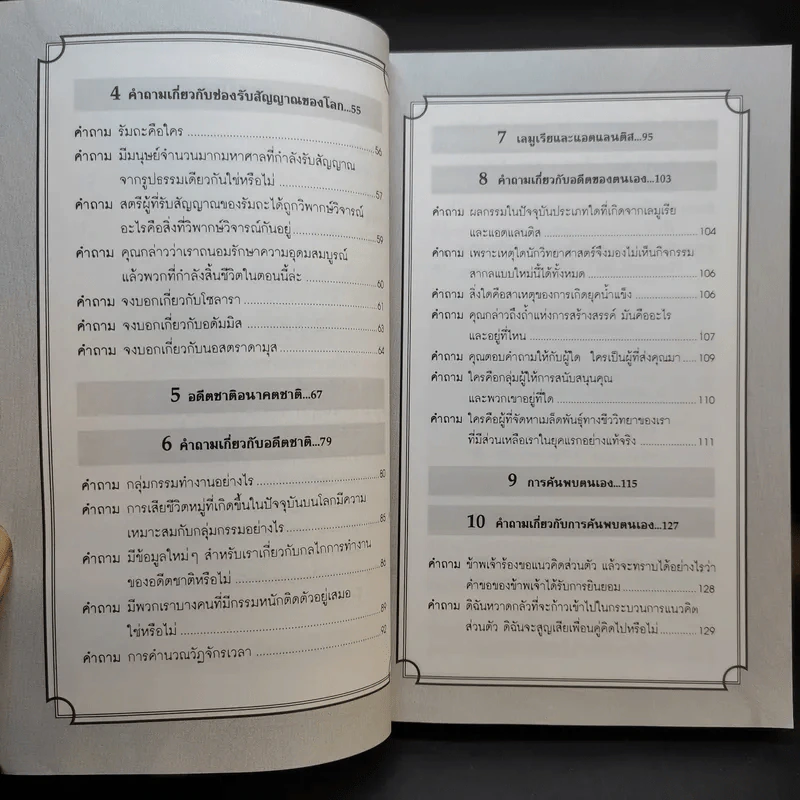 4 คำถามเกี่ยวกับช่องรับสัญญาณของโลก...55
คำถาม รัมถะคือใคร ........ 56
คำถาม มีมนุษย์จำนวนมากมหาศาลที่กำลังรับสัญญาณ
จากรูปธรรมเดียวกันใช่หรือไม่ ........ 57
คำถาม สตรีผู้ที่รับสัญญาณของรัมถะได้ถูกวิพากษ์วิจารณ์
อะไรคือสิ่งที่วิพากษ์วิจารณ์กันอยู่ ........ 59
คำถาม คุณกล่าวว่าเราถนอมรักษาความอุดมสมบูรณ์
แล้วพวกที่กำลังสิ้นชีวิตในตอนนี้ล่ะ ........ 60
คำถาม จงบอกเกี่ยวกับโซลารา ........ 61
คำถาม จงบอกเกี่ยวกับอดัมมิส ........ 63
คำถาม จงบอกเกี่ยวกับนอสตราดามุส ........ 64
5 อดีตชาติอนาคตชาติ...67
6 คำถามเกี่ยวกับอดีตชาติ...79
คำถาม กลุ่มกรรมทำงานอย่างไร ........ 80
คำถาม การเสียชีวิตหมู่ที่เกิดขึ้นในปัจจุบันบนโลกมีความ
เหมาะสมกับกลุ่มกรรมอย่างไร ........ 85
คำถาม มีข้อมูลใหม่ๆ สำหรับเราเกี่ยวกับกลไกการทำงาน
ของอดีตชาติหรือไม่ ........ 86
คำถาม มีพวกเราบางคนที่มีกรรมหนักติดตัวอยู่เสมอ
ใช่หรือไม่ ........ 89
คำถาม การคำนวณวัฏจักรเวลา ........ 92
7 เลมูเรียและแอตแลนติส...95
8 คำถามเกี่ยวกับอดีตของตนเอง...103
คำถาม ผลกรรมในปัจจุบันประเภทใดที่เกิดจากเลมูเรีย
และแอตแลนติส ........ 104
คำถาม เพราะเหตุใดนักวิทยาศาสตร์จึงมองไม่เห็นกิจกรรม
สากลแบบใหม่นี้ได้ทั้งหมด ........ 106
คำถาม สิ่งใดคือสาเหตุของการเกิดยุคน้ำแข็ง ........ 106
คำถาม คุณกล่าวถึงถ้ำแห่งการสร้างสรรค์ มันคืออะไร
และอยู่ที่ไหน ........ 107
คำถาม คุณตอบคำถามให้กับผู้ใด ใครเป็นผู้ที่ส่งคุณมา ..... 109
คำถาม ใครคือกลุ่มผู้ให้การสนับสนุนคุณ
และพวกเขาอยู่ที่ใด ........ 110
คำถาม ใครคือผู้ที่จัดหาเมล็ดพันธุ์ทางชีววิทยาของเรา
ที่มีส่วนเหลือเราในยุคแรกอย่างแท้จริง ........ 111
9 การค้นพบตนเอง...115
10 คำถามเกี่ยวกับการค้นพบตนเอง...127
คำถาม ข้าพเจ้าร้องขอแนวคิดส่วนตัว แล้วจะทราบได้อย่างไรว่า
คำขอของข้าพเจ้าได้รับการยินยอม ........ 128
คำถาม ดิฉันหวาดกลัวที่จะก้าวเข้าไปในกระบวนการแนวคิด
ส่วนตัว ดิฉันจะสูญเสียเพื่อนคู่คิดไปหรือไม่ ........ 129